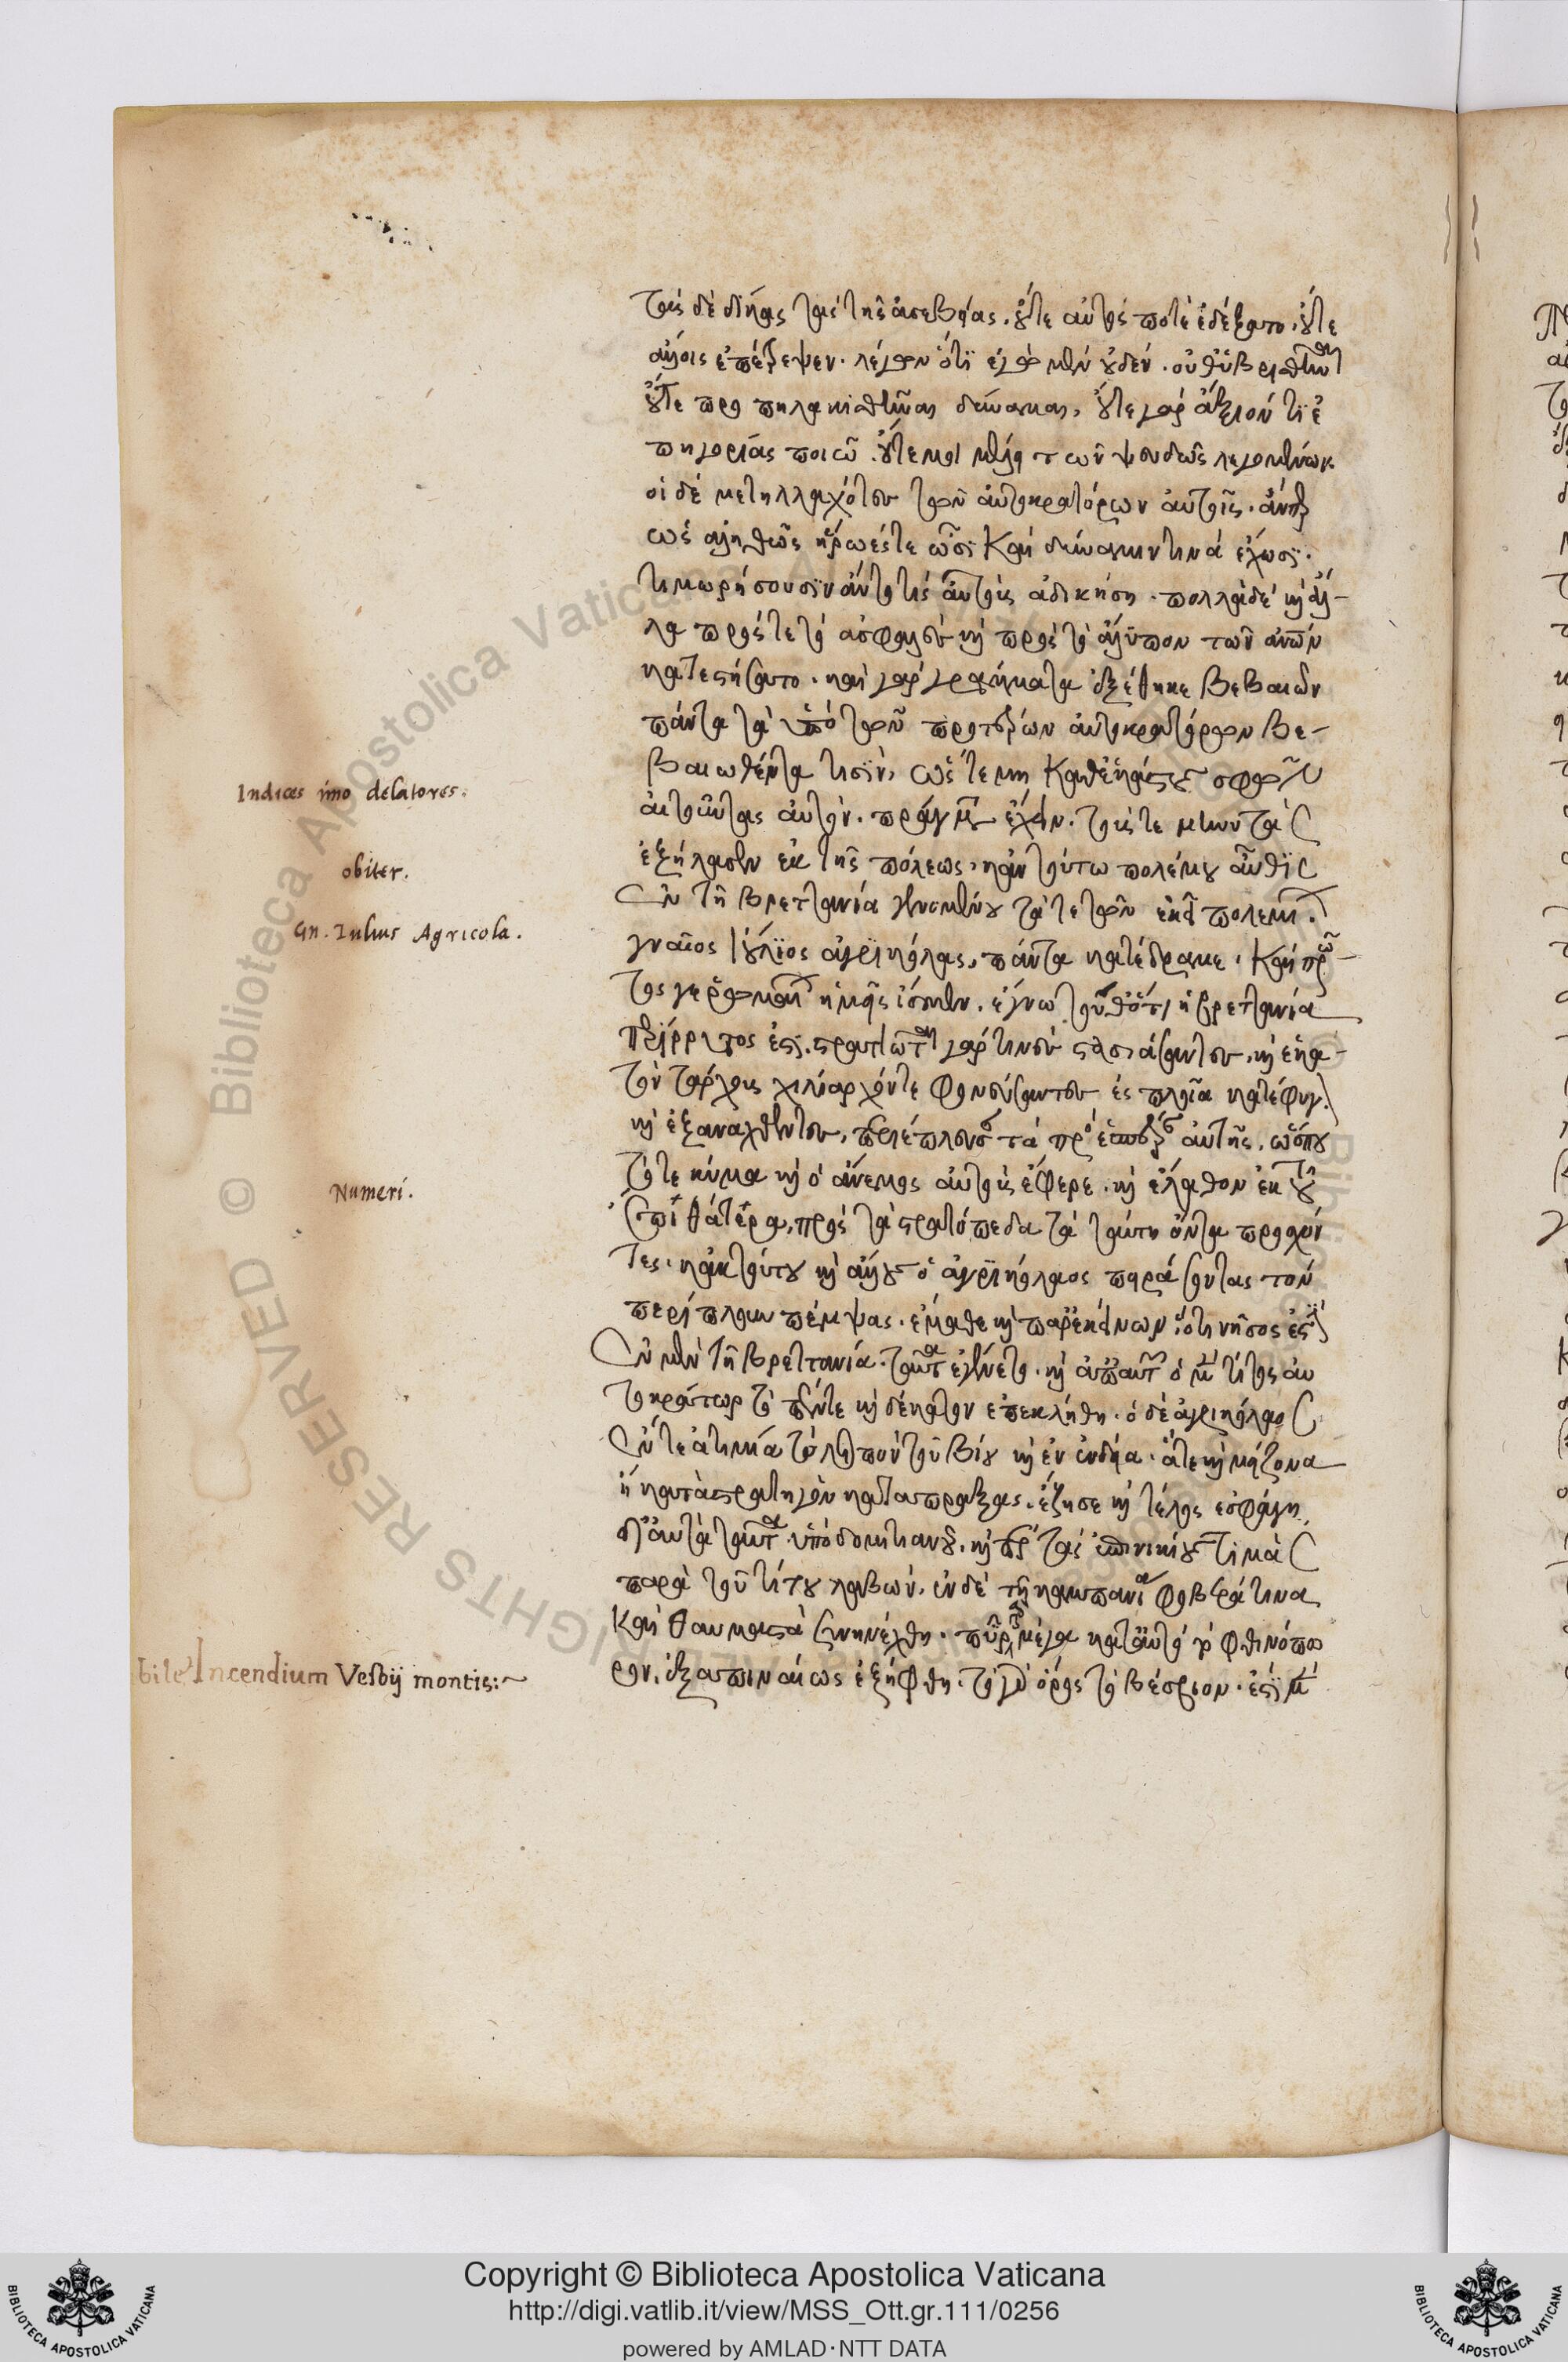 τὰς δὲ δίκας τὰς τῆς ἀσεβείας, οὔτε αὐτός ποτὲ ἐδέξατο, οὔτε
ἄλλοις ἐπέτρεψεν· λέγων ὅτι ἐγὼ μὲν οὐδέν· οὐθ' ὑβρισθῆναι
οὔτε προπηλακισθῆναι δύναμαι, οὔτε γὰρ ἄξιόν τι ἐ
πηγορίας ποιῶ· οὔτε μοι μέλει τῶν ψευδῶς λεγομένων·
οἱ δὲ μετηλλαχότες τῶν αὐτοκρατόρων αὐτοῖς· ἄνπερ
ὡς ἀληθῶς ἥρωές τε ὦσι καὶ δύναμιν τινὰ ἔχωσι·
τιμωρήσουσιν ἄν τό τις αὐτοὺς ἀδικήση· πολλὰ δὲ καὶ ἄλ-
λα πρός τε τὸ ἀσφαλὲς καὶ πρὸς τὸ ἄλυπον τῶν ἀνων
κατεστήσατο· καὶ γὰρ γράμματα ἐξέθηκε βεβαιῶν
πάντα τὰ ὑπὸ τῶν προτέρων αὐτοκρατόρων βε-
βαιωθέντα τισὶν, ὥστε μὴ καθ' ἑκάστους σφῶν
αἰτοῦντας αὐτὸν· πράγματα ἔχειν· τούς τε μηνυτὰς
ἐξήλασεν ἐκ τῆς πόλεως· κἀν τούτω πολέμου αὖθις
ἐν τῆ βρεττανία γενομένου τά τε τῶν ἐκεῖ πολεμί
γναῖος ἰούλιος ἀγρικόλας, πάντα κατέδραμε· καὶ πρῶ-
τος γε ῥωμαίων ἡμεῖς ἴσμεν, ἔγνω τοῦθ' ὅτι ἡ βρεττανία
περίρρυτος ἐστὶ. στρατιῶται γάρ τινες στασιάσαντες, καὶ ἑκα-
τοντάρχους χιλίαρχόν τε φονεύσαντες ἐς πλοῖα κατέφυγ
καὶ ἐξαναχθέντες, περιέπλευσαν τὰ πρὸς ἑσπέραν αὐτῆς, ὥσπου
τό τε κῦμα καὶ ὁ ἄνεμος αὐτοὺς ἔφερε· καὶ ἔλαθον ἐκ τοῦ
ἐπὶ θάτερα, πρὸς τὰ στρατόπεδα τὰ ταύτη ὄντα προσχόν
τες· κἀκ τούτου καὶ ἄλλους ὁ ἀγρικόλαος πειράσοντας τὸν
περίπλουν πέμψας· ἔμαθε καὶ παρ' ἐκείνων, ὅτι νῆσος ἐστὶ
ἐν μὲν τῆ βρεττανία· ταῦτα ἐγένετο· καὶ ἀπ' αὐτῶν ὁ μὲν τίτος αὐ
τοκράτωρ τὸ πέντε καὶ δέκατον ἐπεκλήθη· ὁ δὲ ἀγρικόλαος
ἔν τε ἀτιμία τὸ λοιπὸν τοῦ βίου καὶ ἐν ἐνδεία· ἅτε καὶ μείζονα
ἢ κατὰ στρατηγὸν καταπράξας, ἔζησε καὶ τέλος ἐσφάγη
δι' αὐτὰ ταῦτα ὑπὸ δομιτιανοῦ, καὶ περ τὰς ἐπινικίους τιμὰς
παρὰ τοῦ τίτου λαβών, ἐν δὲ τῆ καμπανία φοβερά τινα
καὶ θαυμαστὰ συνηνέχθη· πῦρ μέγα κατ' αὐτὸ τὸ φθινόπω
ρον, ἐξαπιναίως ἐξήφθη. τὸ γὰρ ὄρος τὸ βέσβιον· ἐστὶ μὲν
Indices imo delatores.
obiter.
Gn. Iulius Agricola.
Numeri.
bile Incendium Vesbij montis:~
Copyright © Biblioteca Apostolica Vaticana
http://digi.vatlib.it/view/MSS_Ott.gr.111/0256
powered by AMLAD·NTT DATA
BIBLIOTECA APOSTOLICA VATICANA
BIBLIOTECA APOSTOLICA VATICANA